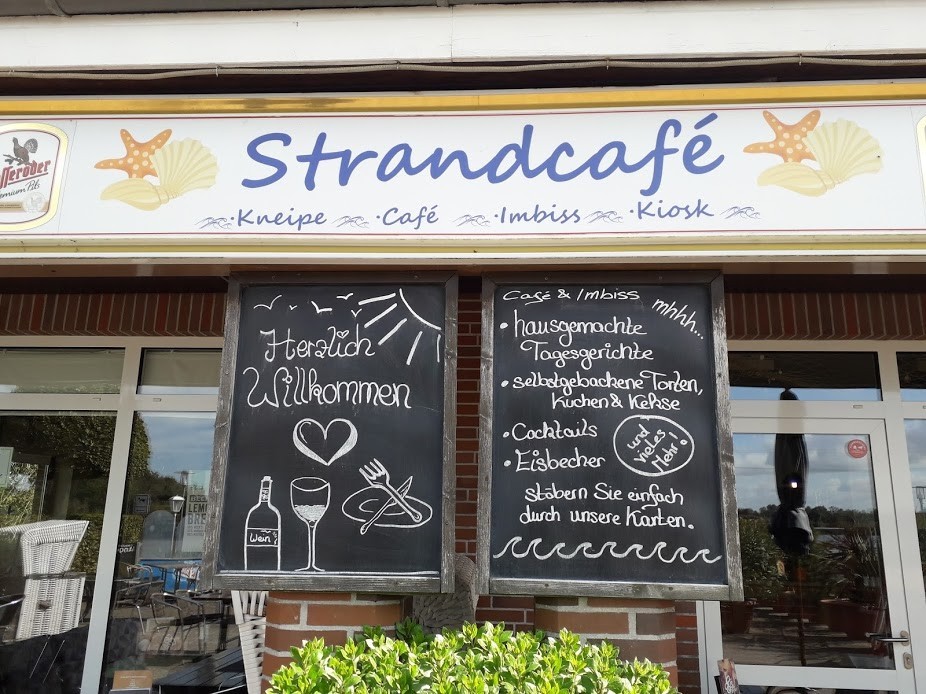 Strandcafé
·Kneipe ·Café ·Imbiss ·Kiosk
Herzlich
Willkommen
Wein
Café & Imbiss
mhhh...
• hausgemachte
Tagesgerichte
• selbstgebackene Torten,
Kuchen & Kekse
• Cocktails
• Eisbecher
und
vieles
Mehr!
stöbern Sie einfach
durch unsere Karten.